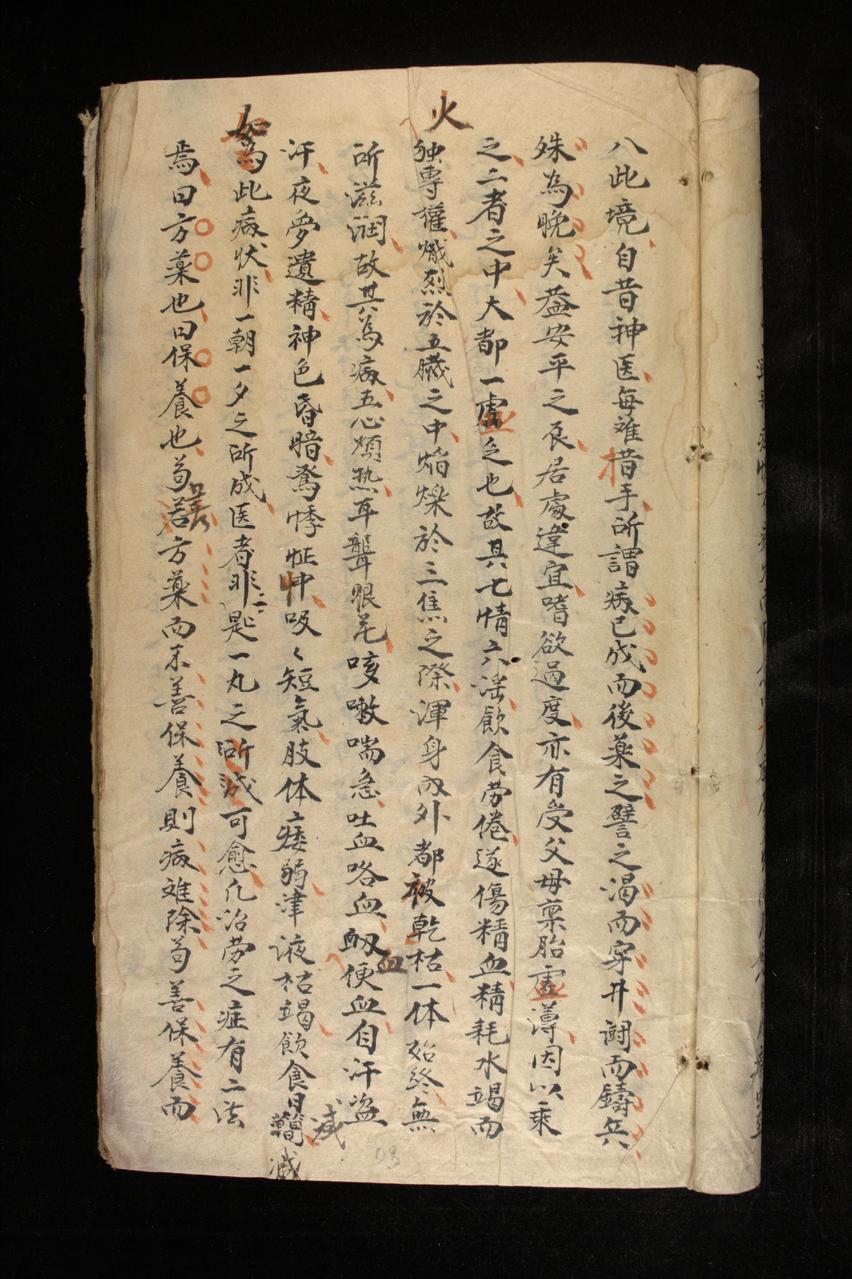 八此境自昔神医每难措手所謂病已成而後薬之譬之渴而穿井鬪而鑄兵
殊為晚矣葢安平之辰居處違宜嗜欲過度亦有受父母禀胎虛薄因以乘
之二者之中大都一虛乏也故其七情六淫飲食劳倦遂傷精血精耗水竭而
火
独專權熾烈於五臓之中焰爍於三焦之際渾身内外都被乾枯一体始終無
所滋潤故其為病五心煩热耳聾眼花咳嗽喘急吐血咯血衂血便血自汗盗
汗夜夢遺精神色昏暗驚悸怔忡吸々短氣肢体痿弱津液枯竭飲食日減
如為此病状非一朝一夕之所成医者非匙一丸之所可愈凡治劳之症有二法
焉曰方薬也曰保養也苟善方薬而不善保養則病难除苟善保養而